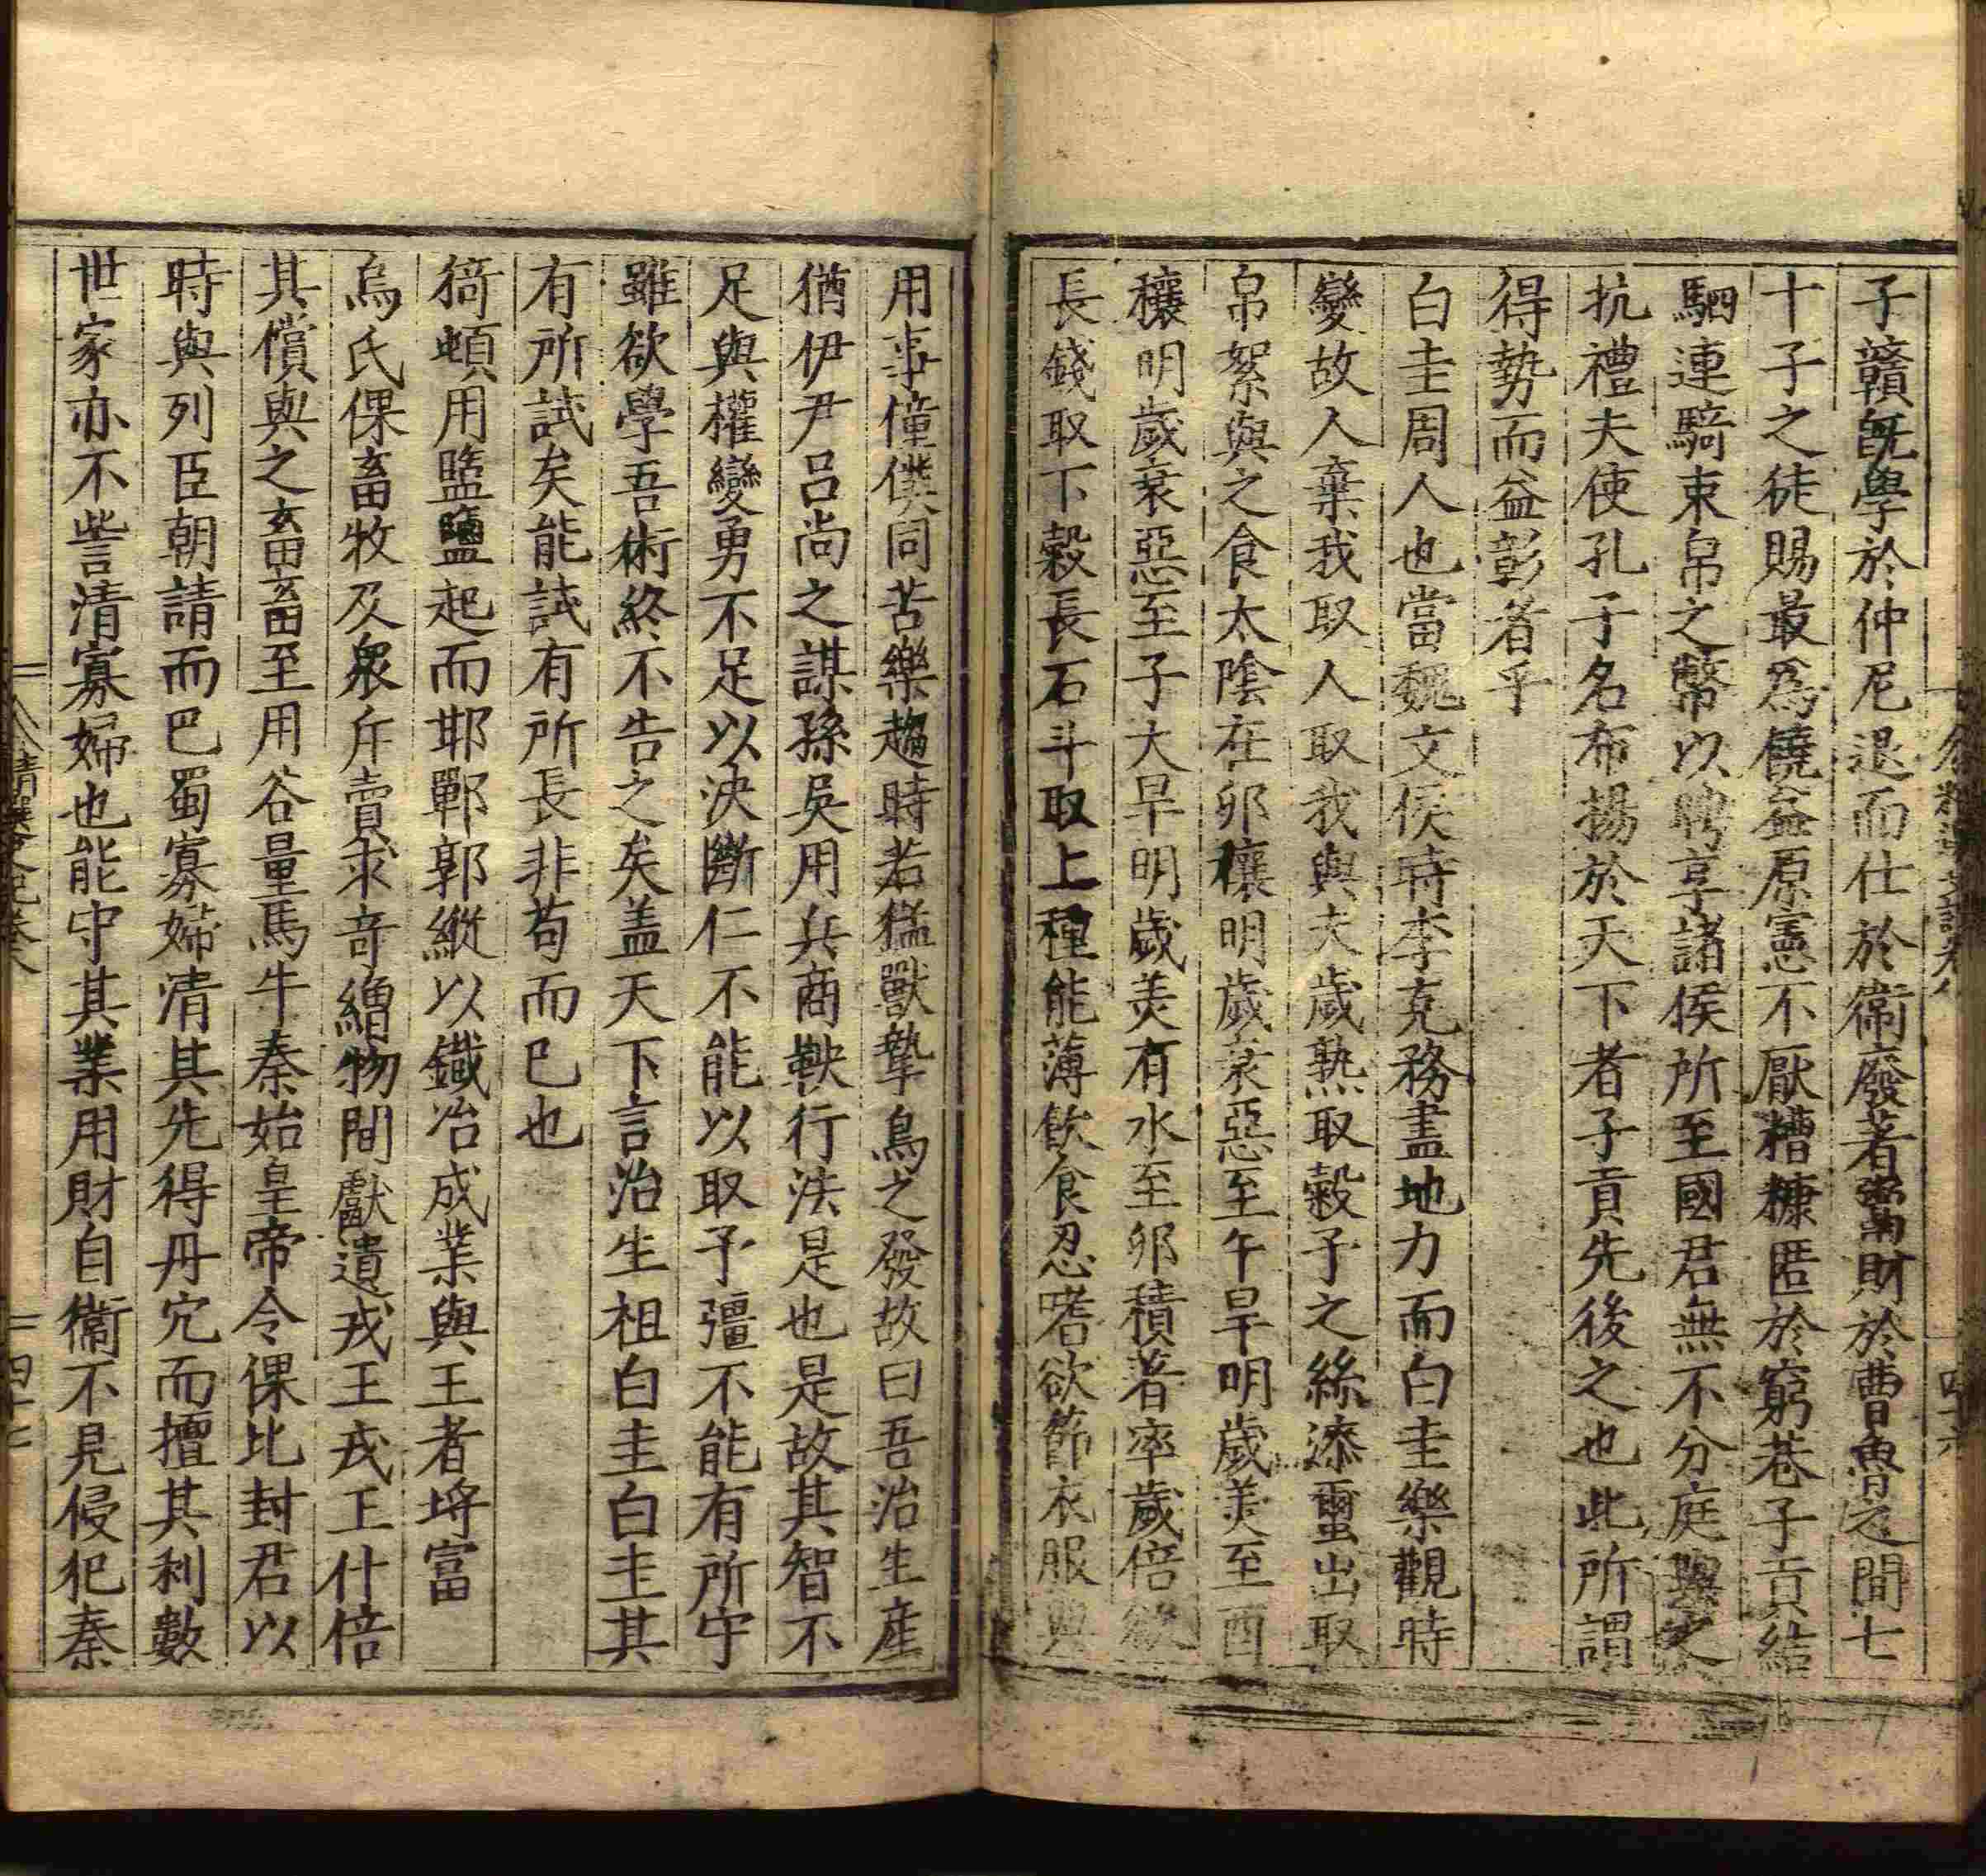 子贛既學於仲尼退而仕於衞廢著鬻財於曹魯之間七
十子之徒賜最爲饒益原憲不厭糟糠匿於窮巷子貢結
駟連騎束帛之幣以聘享諸侯所至國君無不分庭與之
抗禮夫使孔子名布揚於天下者子貢先後之也此所謂
得勢而益彰者乎
白圭周人也當魏文侯時李克務盡地力而白圭樂觀時
變故人棄我取人取我與夫歲熟取穀予之絲漆蠒出取
帛絮與之食太陰在卯穰明歲衰惡至午旱明歲美至酉
穰明歲衰惡至子大旱明歲美有水至卯積著率歲倍欲
長錢取下穀長石斗取上種能薄飲食忍嗜欲節衣服與
用事僮僕同苦樂趨時若猛獸摯鳥之發故曰吾治生産
猶伊尹吕尚之謀孫吳用兵商鞅行法是也是故其智不
足與權變勇不足以決斷仁不能以取予彊不能有所守
雖欲學吾術終不告之矣盖天下言治生祖白圭白圭其
有所試矣能試有所長非苟而已也
猗頓用盬鹽起而邯鄲郭縱以鐵冶成業與王者埒富
烏氏倮畜牧及衆斥賣求奇繒物間獻遺戎王戎王什倍
其償與之畜畜至用谷量馬牛秦始皇帝令倮比封君以
時與列臣朝請而巴蜀寡婦清其先得丹穴而擅其利數
世家亦不訾清寡婦也能守其業用財自衞不見侵犯秦
精選史記卷八
四十七